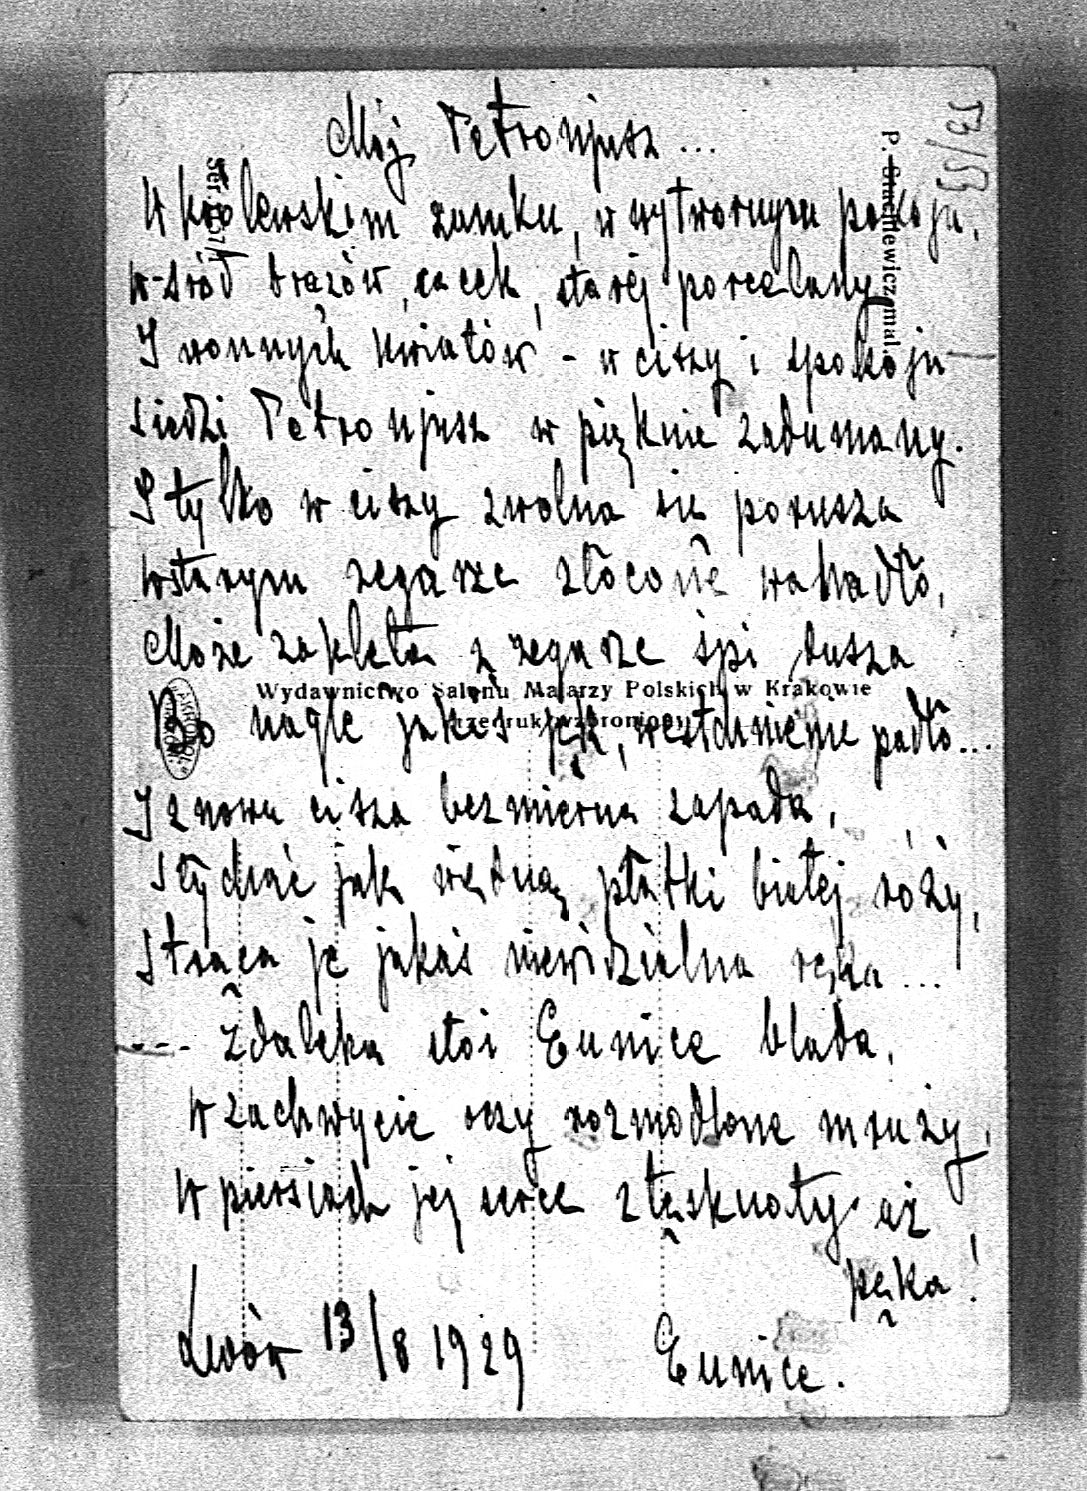 Mój Petronjusz...
W królewskim zamku, w wytwornym pokoju,
W-śród brązów, cacek, starej porcelany
I wonnych kwiatów - w ciszy i spokoju
siedzi Petronjusz w pięknie zadumany.
I tylko w ciszy zwolna się porusza
w starym zegarze złocone wahadło,
Może zaklęta z zegarze śpi dusza
Wydawnictwo Salonu Malarzy Polskich w Krakowie
Przedruk wzbroniony
Bo nagle jakieś jęk, westchnienie padło...
I znowu cisza bezmierna zapada,
Słychać jak więdną płatki białej róży,
Strąca je jakaś niewidzialna ręka...
--- Zdaleka stoi Eunice blada,
W zachwycie oczy rozmodlone mruży,
W piersiach jej serce z tęsknoty aż
pęka!
Lwów 13/8 1929
Eunice.
P. Stachiewicz mal.
53/53